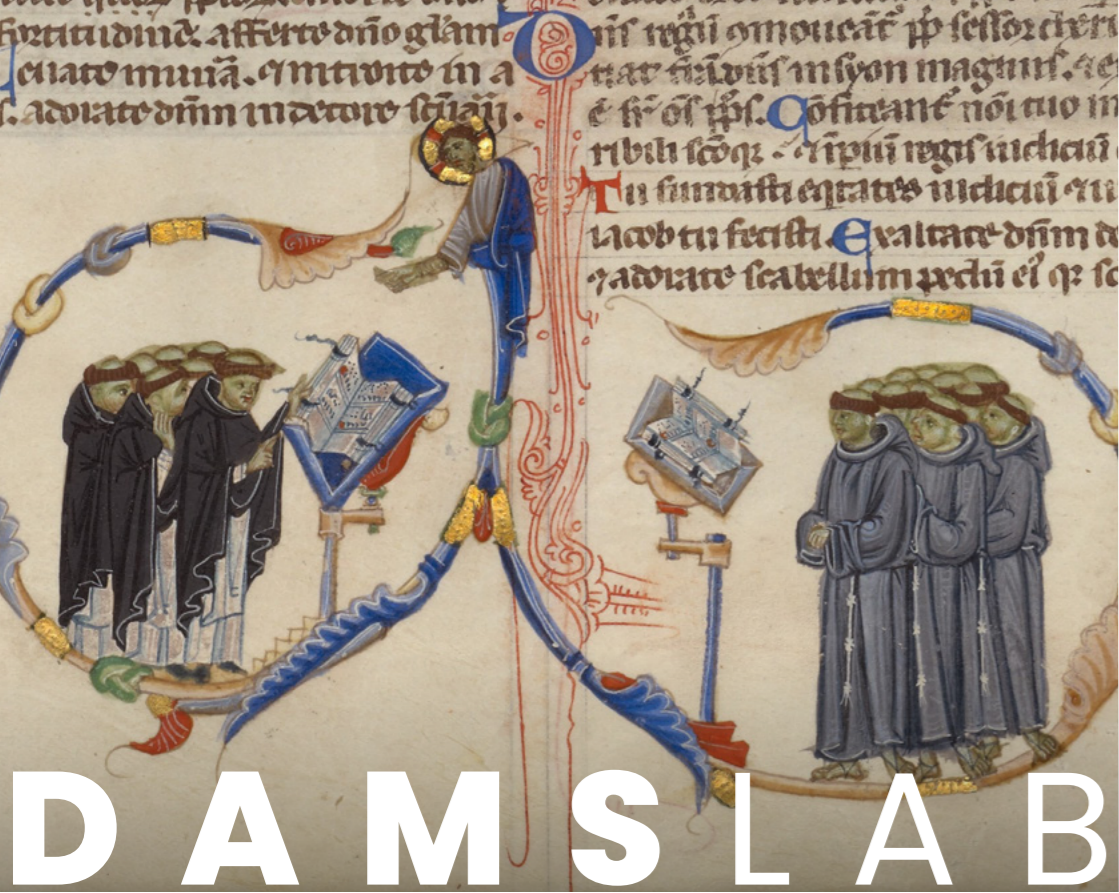 fortitudinẽ. afferte dño glam
Leuate munã. ⁊ introite in a
adorate dñm in decore scũarij.
Dñs regũ ꝯmoueãt pp̃ sessor cher
tiat t̃ra. dñs in syon magnus. ⁊ e
ē sr̃ oẽs pp̃s. Cõfiteant̃ nõi tuo m
ribili scõqꝫ. ⁊ ĩpiũ regis iudiciũ
Tu fundasti eqtates iudiciũ ⁊ iu
iacob tu fecisti. Exaltate dñm d
⁊ adorate scabellum pedũ eiꝰ qꝛ sc
DAMSLAB